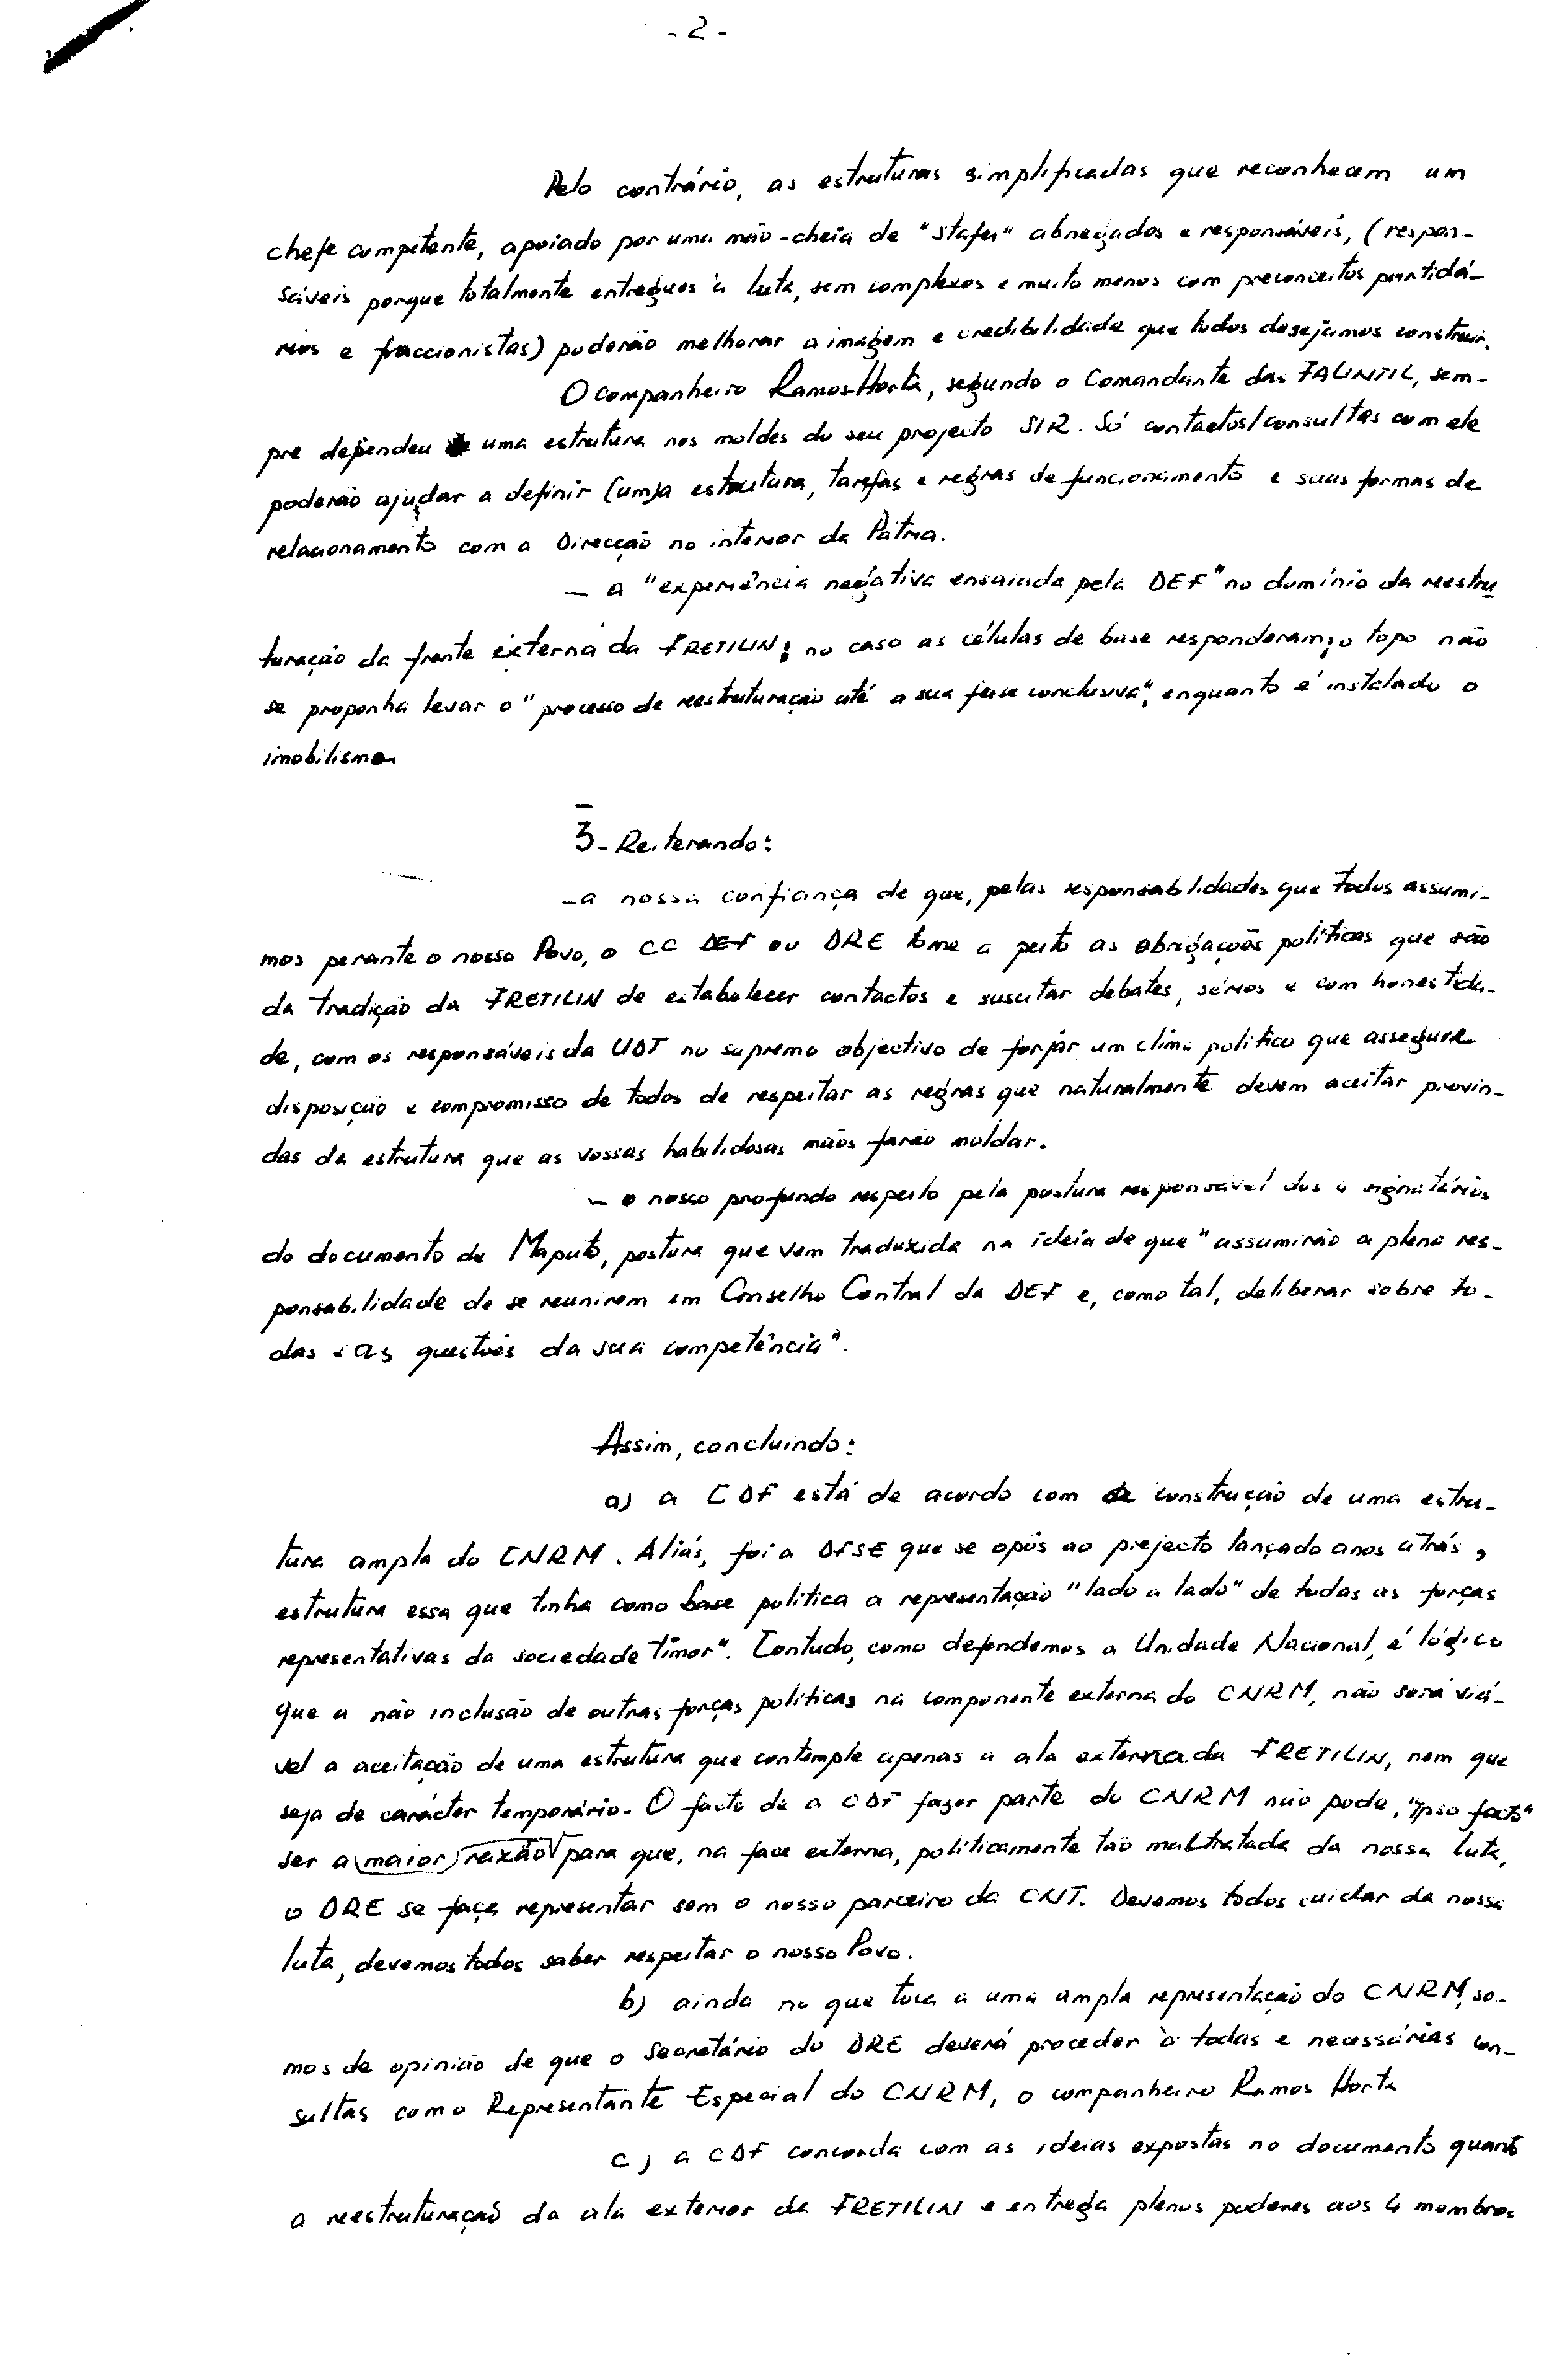 - 2 -
Pelo contrário, as estruturas simplificadas que reconhecem um
chefe competente, apoiado por uma mão-cheia de "stafes" abnegados e responsáveis, (respon-
sáveis porque totalmente entregues à luta, sem complexos e muito menos com preconceitos partidá-
rios e fraccionistas) poderão melhorar a imagem e credibilidade que todos desejamos construir.
O companheiro Ramos-Horta, segundo o Comandante das FALINTIL, sem-
pre dependeu de uma estrutura nos moldes do seu projecto SIR. Só contactos/consultas com ele
poderão ajudar a definir (um)a estrutura, tarefas e regras de funcionamento e suas formas de
relacionamento com a Direcção no interior da Pátria.
— a "experiência negativa ensaiada pela DEF" no domínio da reestru
turação da frente externa da FRETILIN; no caso as células de base responderam; o topo não
se proponha levar o "processo de reestruturação até a sua fase conclusiva", enquanto é instalado o
imobilismo
3- Reiterando:
- a nossa confiança de que, pelas responsabilidades que todos assumi-
mos perante o nosso Povo, o CC DEF ou DRE tome a peito as obrigações políticas que são
da tradição da FRETILIN de estabelecer contactos e suscitar debates, sérios e com honestida-
de, com os responsáveis da UDT no supremo objectivo de forjar um clima político que assegure
disposição e compromisso de todos de respeitar as regras que naturalmente devem aceitar provin-
das da estrutura que as vossas habilidosas mãos farão moldar.
- o nosso profundo respeito pela postura responsável dos 4 signatários
do documento de Maputo, postura que vem traduzida na ideia de que "assumirão a plena res-
ponsabilidade de se reunirem em Conselho Central da DEF e, como tal, deliberar sobre to-
das as questões da sua competência".
Assim, concluindo:
a) a CDF está de acordo com a construção de uma estru-
tura ampla do CNRM. Aliás, foi a DFSE que se opôs ao projecto lançado anos atrás,
estrutura essa que tinha como base política a representação "lado a lado" de todas as forças
representativas da sociedade timor". Contudo, como defendemos a Unidade Nacional, é lógico
que a não inclusão de outras forças políticas na componente externa do CNRM, não será viá-
vel a aceitação de uma estrutura que contemple apenas a ala externa da FRETILIN, nem que
seja de carácter temporário. O facto de a CDF fazer parte do CNRM não pode, "ipso facto"
ser a maior razão para que, na face externa, politicamente tão maltratada da nossa luta,
o DRE se faça representar sem o nosso parceiro da CNT. Devemos todos cuidar da nossa
luta, devemos todos saber respeitar o nosso Povo.
b) ainda no que toca a uma ampla representação do CNRM, so-
mos de opinião de que o secretário do DRE deverá proceder à todas e necessárias con-
sultas como Representante Especial do CNRM, o companheiro Ramos Horta
c) a CDF concorda com as ideias expostas no documento quanto
a reestruturação da ala exterior da FRETILIN e entrega plenos poderes aos 4 membros